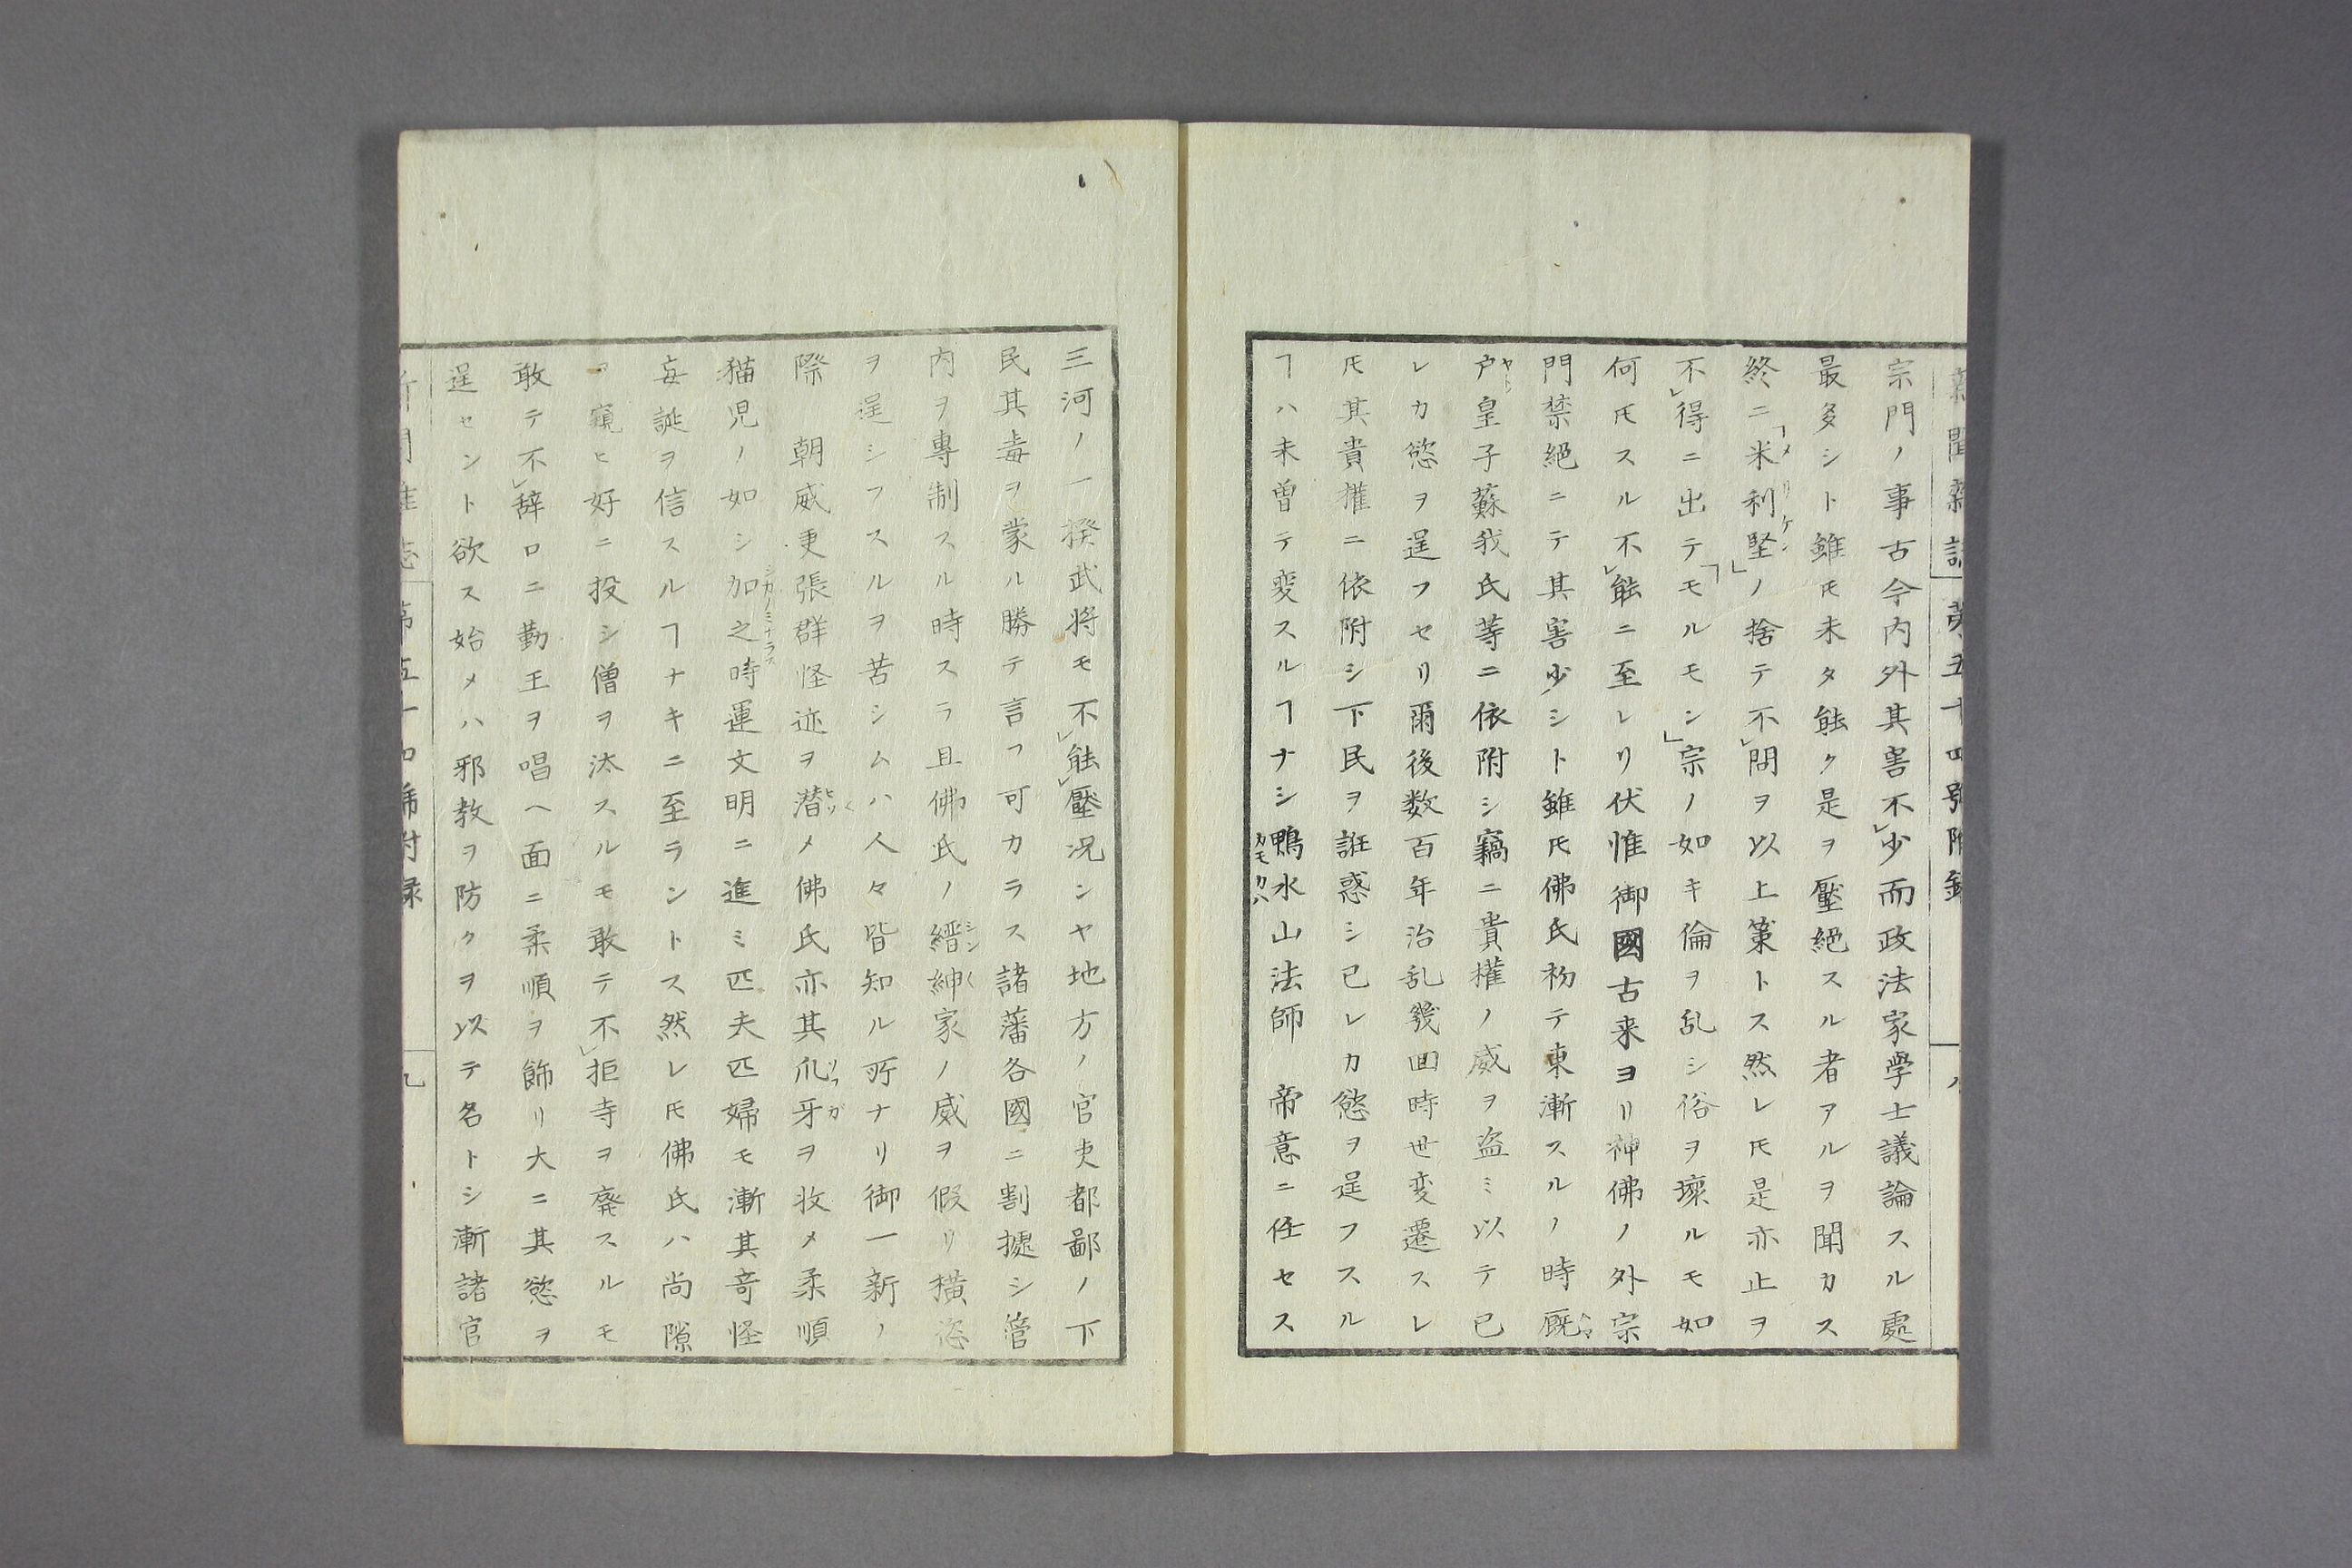 新聞雑誌 第五十四號附録 八
宗門ノ事古今内外其害不レ少而政法家學士議論スル處
最多シト雖㪽未タ能ク是ヲ壓絕スル者アルヲ聞カス
終ニ「米利堅」ノ捨テ不レ問ヲ以上策トス然レ㪽是亦止ヲ
不レ得ニ出テ「モルモン」宗ノ如キ倫ヲ乱シ俗ヲ壞ルモ如
何㪽スル不レ能ニ至レリ伏惟御國古来ヨリ神佛ノ外宗
門禁絕ニテ其害少シト雖㪽佛氏初テ東漸スルノ時厩
戸皇子蘇我氏等ニ依附シ竊ニ貴權ノ威ヲ盗ミ以テ已
レカ慾ヲ逞フセリ爾後数百年治乱幾回時世変遷スレ
㪽其貴權ニ依附シ下民ヲ誑惑シ已レカ慾ヲ逞フスル
ヿハ未曽テ変スルヿナシ鴨水山法師　帝意ニ任セス
三河ノ一揆武将モ不レ能レ壓況シヤ地方ノ官吏都鄙ノ下
民其毒ヲ蒙ル勝テ言フ可カラス諸藩各國ニ割據シ管
内ヲ專制スル時スラ且佛氏ノ縉紳家ノ威ヲ假リ横恣
ヲ逞シフスルヲ苦シムハ人々皆知ル所ナリ御一新ノ
際　朝威更張群怪迹ヲ潜メ佛氏亦其爪牙ヲ收メ柔順
猫児ノ如シ加之時運文明ニ進ミ匹夫匹婦モ漸其竒怪
妄誕ヲ信スルヿナキニ至ラントス然レ㪽佛氏ハ尚隙
ヲ窺ヒ好ニ投シ僧ヲ汰スルモ敢テ不レ拒寺ヲ廢スルモ
敢テ不レ辞口ニ勤王ヲ唱ヘ面ニ柔順ヲ飾リ大ニ其慾ヲ
逞セント欲ス始メハ邪教ヲ防クヲ以テ名トシ漸諸官
新聞雑誌 第五十四號附録 九